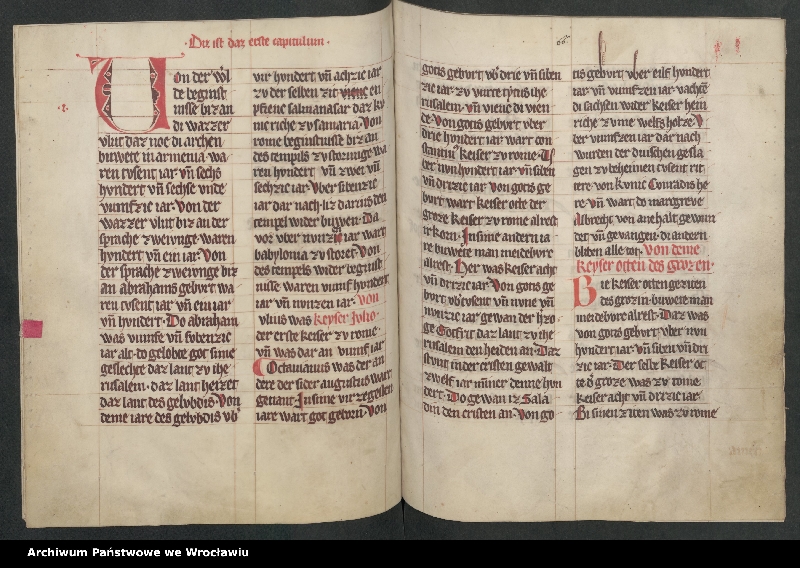 Diz ist daz erste capitulum·
·i·
Uon der w͛l
de begīnst
nisse biz an
di wazzer
vlut daz noe di archen
buwete in armenia wa
ren tvsent iar· vn̄ sechs
hvndert vn̄ sechse vnde
vumfzic iar· Von der
wazzer vlut biz an der
sprache zweivnge waren
hvndert vn̄ ein iar· Von
der sprache zweivnge biz
an abrahams gebvrt wa
ren tvsent iar vn̄ ein iar
vn̄ hvndert· Do abraham
was vumfe vn̄ sybenzic
iar alt· do gelobte got sime
geslechte daz lant zv ihe
rusalem· daz lant heizet
daz lant des gelvbdis· Von
deme iare des gelvbdis vb͛
vir hvndert vn̄ achzic iar
zv der selben zit viene en
pfiene salmanasar daz ky
nicriche zv samaria· Von
rome beginstnisse biz an
des tempils zv storunge wa
ren hvndert vn̄ zwei vn̄
sechzic iar· Vber sibenzic
iar dar nach liz darius den
tempel wider buwen· Da
vor vber nvnzic iar wart
babylonia zv storet· Von
des tempels wider beginst
nisse waren vumf hvndert
iar vn̄ nvnzen iar· von
vlius was keyser Julio·
der erste keiser zv rome·
vn̄ was dar an vumf iar
Octauianus was der an
dere der sider augustus wart
genant· In sime vir zegesten
iare wart got geborn· Von
66
gotis gebvrt vb͛ drie vn̄ siben
zic iar zv vurte tytus ihe
rusalem· vn̄ viene di vien
de· Von gotis gebvrt vber
drie hvndert iar wart con
stantinꝰ keiser zv rome· Vb͛
der nvn hvndert iar· vn̄ siben
vn̄ drizic iar· Von gotis ge
bvrt wart keiser otte der
groze keiser zv rome alrest
ir korn· In sime andern ia
re buwete man meidebvrc
alrest· Her was keiser acht
vn̄ drizic iar· Von gotis ge
bvrt vb͛ tvsent vn̄ nvne vn̄
nvnzic iar gewan der h͛zo
ge Gotfrit daz lant zv ihe
rusalem den heiden an· Daz
stvnt in der cristen gewalt
zwelf iar minner denne hvn
dert· Do gewan iz Sala
din den cristen an· Von go
tis gebvrt vber eilf hvndert
iar vn̄ vumfzen iar· vachtē
di sachsen wider keiser hein
riche zv me welfs holze· V
ber vumfzen iar dar nach
wurden der dutschen gesla
gen zv behemen tvsent rit
tere· von kvnic Conradis he
re· vn̄ wart do margreve
Albrecht von anehalt gewun
det· vn̄ gevangen· di andern
bliben alle tot· von deme
keyser otten des grozen·
Bie keiser otten geziten
des grozin· buwete man
meidebvrc alrest· Daz was
von gotis gebvrt· vber nvn
hvndert iar· vn̄ siben vn̄ dri
zic iar· Der selbe keiser ot
te d͛ groze was zv rome
keiser acht vn̄ drizic iar·
Bi sinen ziten was zv rome
Archiwum Państwowe we Wrocławiu